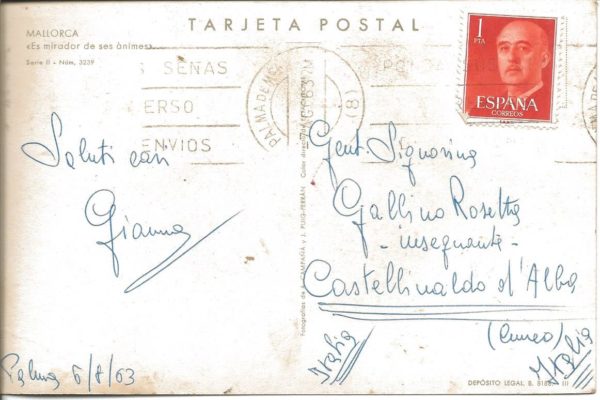 TARJETA POSTAL
MALLORCA
«Es mirador de ses ànimes»
Serie II - Núm. 3239
SEÑAS
ERSO
ENVIOS
PALMA DE M
63
(8)
1
PTA
ESPAÑA
CORREOS
Saluti cari
Gianna
Palma 6/8/63
Fotografías de J. CAMPAÑÁ y J. PUIG-FERRÁN
Gent. Signorina
Gallino Rosetta
- insegnante -
Castellinaldo d'Alba
(Cuneo)
Italia
Italia
DEPÓSITO LEGAL, B.
III